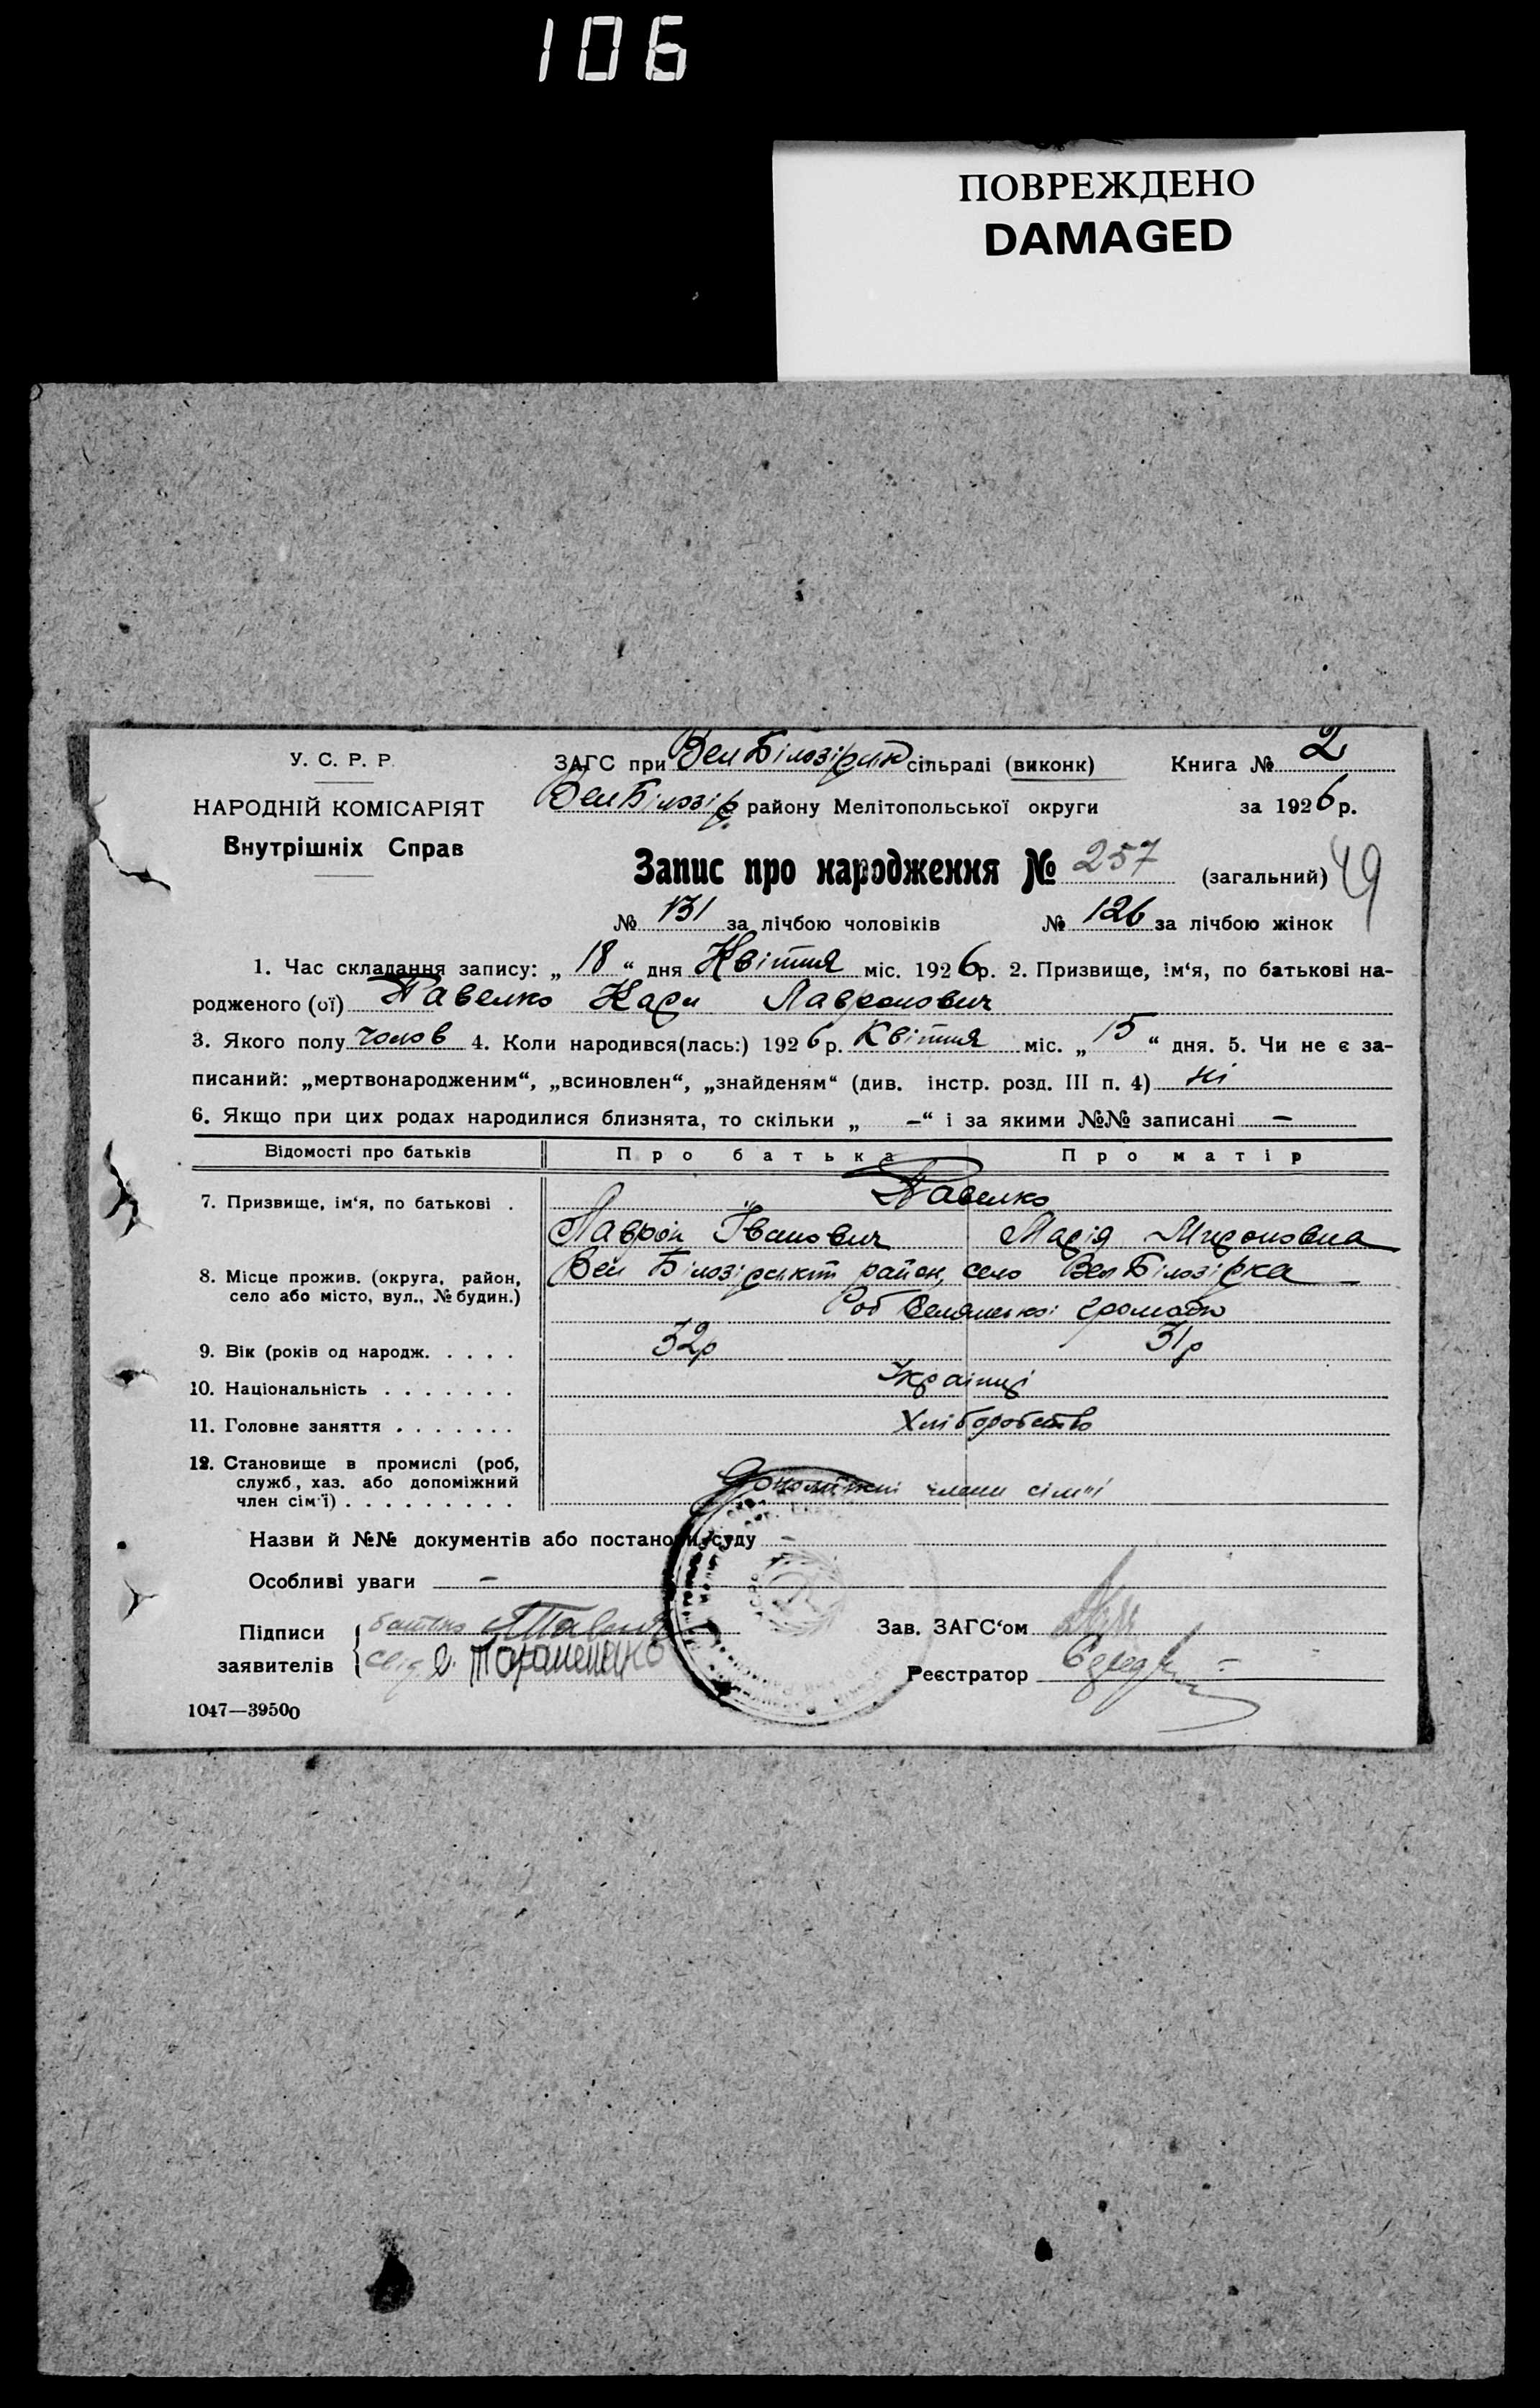 106
ПОВРЕЖДЕНО
DAMAGED
У. С. Р. Р.
НАРОДНІЙ КОМІСАРІЯТ
Внутрішніх Справ
ЗАГС при Вел Білозірськ сільраді (виконк) Книга № 2
Вел Білозір району Мелітопольської округи за 1926 р.
Запис про народження № 257 (загальний) 49
№ 131 за лічбою чоловіків № 126 за лічбою жінок
1. Час складання запису: „ 18 “ дня Квітня міс. 1926 р. 2. Призвище, ім‘я, по батькові на-
родженого (ої) Павелко Карп Лавронович
3. Якого полу чолов 4. Коли народився(лась:) 1926 р. Квітня міс. „ 15 “ дня. 5. Чи не є за-
писаний: „мертвонародженим“, „всиновлен“, „знайденям“ (див. інстр. розд. III п. 4) ні
6. Якщо при цих родах народилися близнята, то скільки „ —“ і за якими №№ записані —
Відомості про батьків Про батька Про матір
7. Призвище, ім‘я, по батькові . Павелко
Лаврон Іванович Марія Мироновна
8. Місце прожив. (округа, район,
село або місто, вул., № будин.)
Вел Білозірський район, село Вел Білозірка
Селянської громади
9. Вік (років од народж. . . . . 32р 31р
10. Національність . . . . . . . Українці
11. Головне заняття . . . . . . . Хліборобство
12. Становище в промислі (роб,
служб, хаз. або допоміжний
член сім‘ї) . . . . . . . . . Допоміжні члени сім'ї
Назви й №№ документів або постанови суду
Особливі уваги —
Підписи
заявителів
батько
свід. Тараненко
Зав. ЗАГС‘ом
Реєстратор
1047—39500